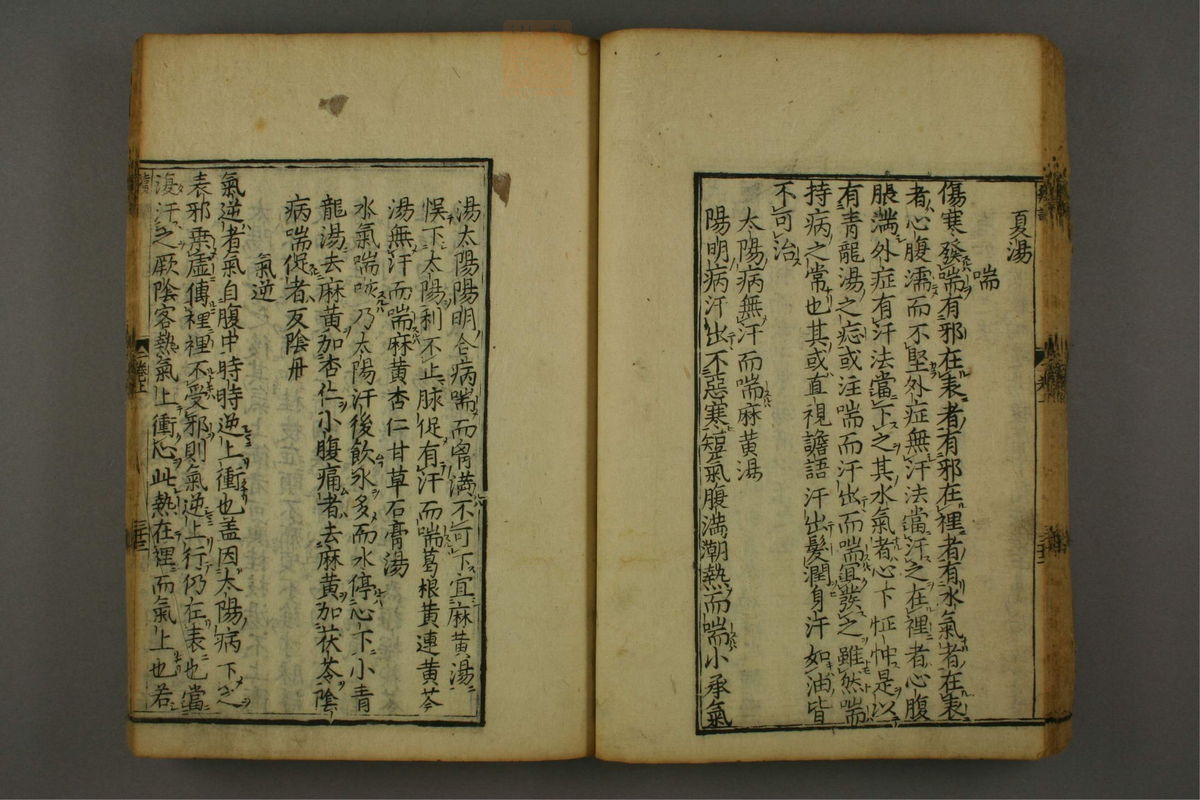 夏湯
喘
傷寒發喘有邪在表者有邪在裡者有水氣者在表
者心腹濡而不堅外症無汗法當汗之在裡者心腹
脹滿外症有汗法當下之其水氣者心下怔忡是以
有青龍湯之症或注喘而汗出而喘宜發之雖然喘
持病之常也其或直視譫語汗出髮潤身汗如油皆
不可治
太陽病無汗而喘麻黄湯
陽明病汗出不惡寒短氣腹滿潮熱而喘小承氣
湯太陽陽明合病喘而胷滿不可下宜麻黄湯
悞下太陽利不止脉促有汗而喘葛根黄連黄芩
湯無汗而喘麻黄杏仁甘草石膏湯
水氣喘咳乃太陽汗後飲水多而水停心下小青
龍湯去麻黄加杏仁小腹痛者去麻黄加茯苓陰
病喘促者反陰丹
氣逆
氣逆者氣自腹中時時逆上衝也盖因太陽病下之
表邪乗虚傳裡裡不受邪則氣逆上行仍在表也當
復汗之厥陰客熱氣上衝心此熱在裡而氣上也若
卷上
二十三